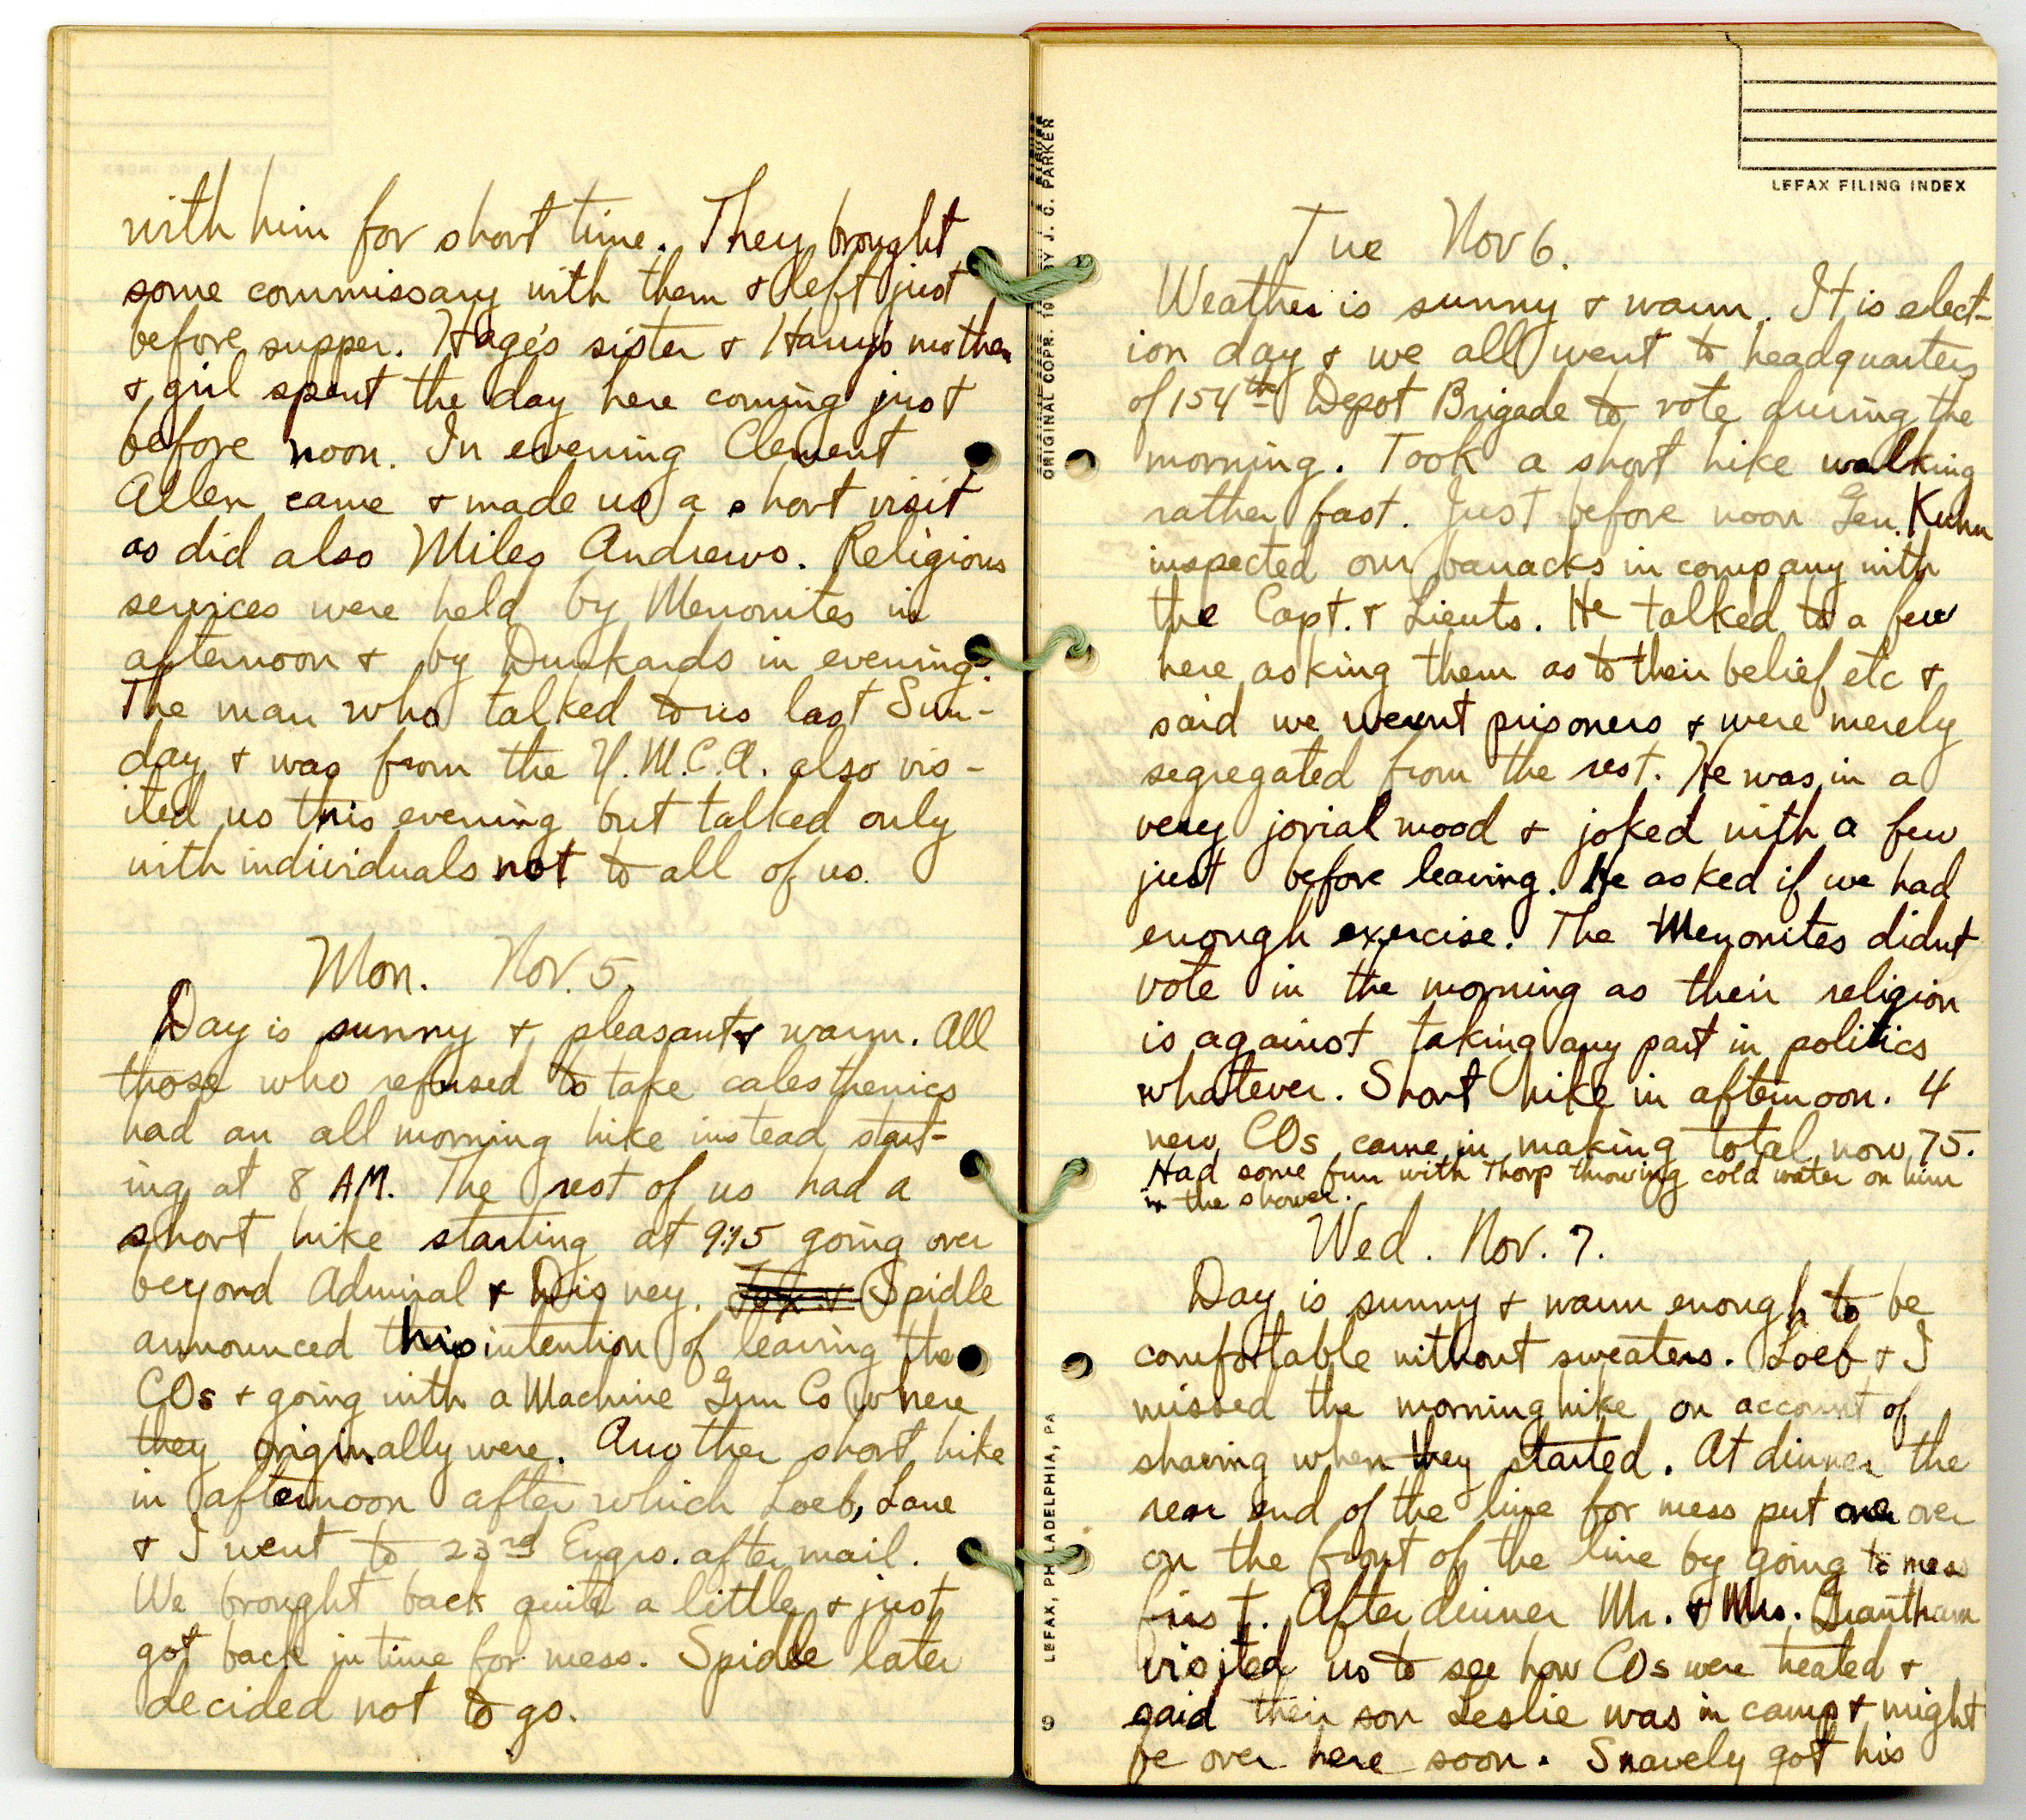 with him for short time. They brought
some commissary with them & left just
before supper. Hage's sister & Harry's mother
& girl spent the day here coming just
before noon. In evening Clement
Allen came & made us a short visit
as did also Miles Andrews. Religious
services were held by Menonites in
afternoon & by Dunkards in evening.
The man who talked to us last Sun-
day & was from the Y.M.C.A. also vis-
ited us this evening but talked only
with individuals not to all of us.
Mon. Nov. 5.
Day is sunny & pleasant & warm. All
those who refused to take calesthenics
had an all morning hike instead start-
ing at 8 AM. The rest of us had a
short hike starting at 9:15 going over
beyond Admiral & Disney. Spidle
announced this intention of leaving the
COs & going with a Machine Gun Co where
they originally were. Another short hike
in afternoon after which Loeb, Lane
& I went to 23rd Engrs. after mail.
We brought back quite a little & just
got back in time for mess. Spidle later
decided not to go.
LEFAX FILING INDEX
ORIGINAL COPR. 19 BY J. C. PARKER
Tue Nov 6.
Weather is sunny & warm. It is elect-
ion day & we all went to headquarters
of 154th Depot Brigade to vote during the
morning. Took a short hike walking
rather fast. Just before noon Gen. Kuhn
inspected our barracks in company with
the Capt. & Lieuts. He talked to a few
here asking them as to their belief etc &
said we werent prisoners & were merely
segregated from the rest. He was in a
very jovial mood & joked with a few
just before leaving. He asked if we had
enough exercise. The Menonites didnt
vote in the morning as their religion
is against taking any part in politics
whatever. Short hike in afternoon. 4
new COs came in making total now 75.
Had some fun with Thorp throwing cold water on him
in the shower.
Wed. Nov. 7.
Day is sunny & warm enough to be
comfortable without sweaters. Loeb & I
missed the morning hike on account of
shaving when they started. At dinner the
rear end of the line for mess put one over
on the front of the line by going to mess
first. After dinner Mr. & Mrs. Grantham
visited us to see how COs were treated &
said their son Leslie was in camp & might
be over here soon. Snavely got his
LEFAX, PHILADELPHIA, PA
9